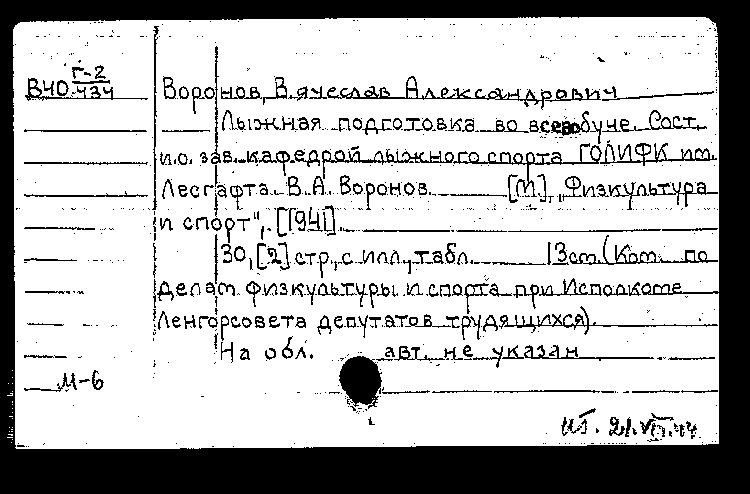 В40 Г-2
434
Воронов, Вячеслав Александрович
Лыжная подготовка во всевобуче. Сост.
и.о. зав. кафедрой лыжного спорта ГОЛИФК им.
Лесгафта. В.А. Воронов. [М], „Физкультура
и спорт", [1941].
30, [2] стр., с илл., табл. 13 см. (Ком. по
делам физкультуры и спорта при Исполкоме
Ленгорсовета депутатов трудящихся).
На обл. авт. не указан
М-6
21.VII.44